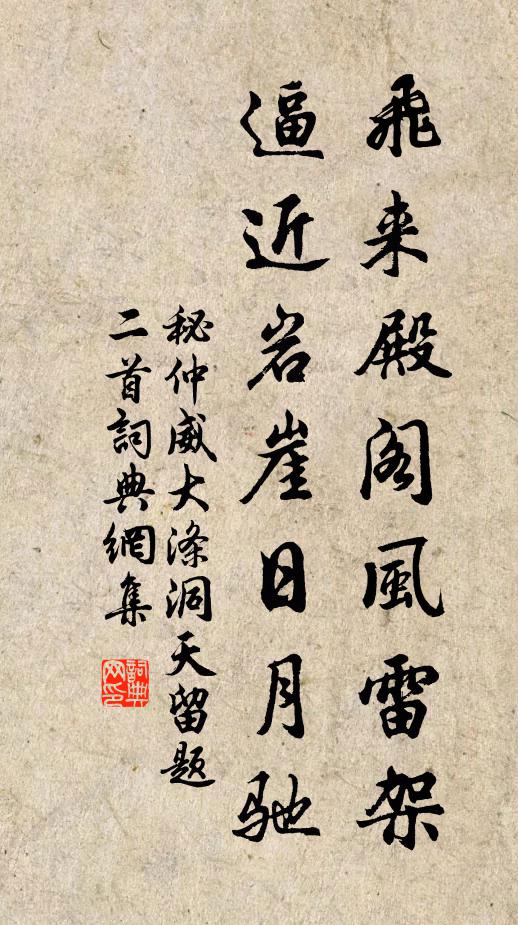 飛来殿阁風雷架
逼近岩崖日月驰
秘仲威大涤洞天留题
二首詞典網集
詞典网印